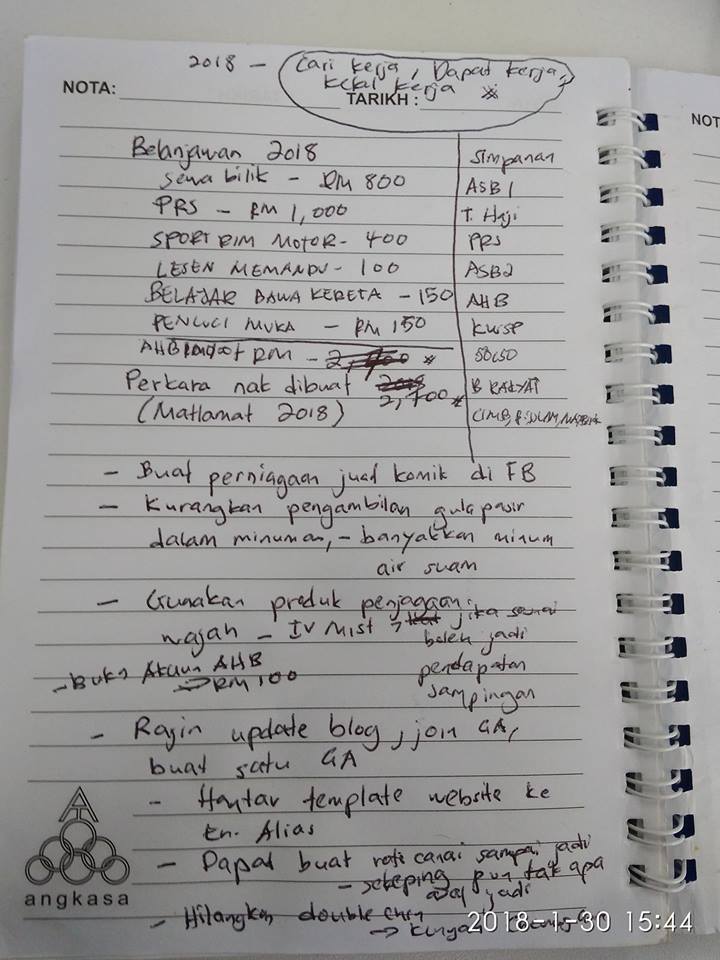 2018 - Cari kerja, Dapat kerja,
kekal kerja
NOTA: TARIKH :
NOT
Belanjawan 2018
Sewa bilik - RM 800
PRS - RM 1,000
SPORT RIM MOTOR - 400
LESEN MEMANDU - 100
BELAJAR BAWA KERETA - 150
PENCUCI MUKA - RM 150
AHB RM
2,700
Perkara nak dibuat
(Matlamat 2018)
Simpanan
ASB 1
T. Haji
PRS
ASB2
AHB
KWSP
SSPN
B RAKYAT
CIMB, B. ISLAM,
- Buat perniagaan jual komik di FB
- Kurangkan pengambilan gula pasir
dalam minuman, - banyakkan minum
air suam
- Gunakan produk penjagaan
wajah - IV Mist → jika sesuai
boleh jadi
pendapatan
sampingan
- Buka Akaun AHB
→ RM 100
- Rajin update blog, join GA,
buat satu GA
- Hantar template website ke
En. Alias
- Dapat buat roti canai sampai jadi
- sekeping pun tak apa
asal jadi
- Hilangkan double chin
→
angkasa
2018-1-30 15:44